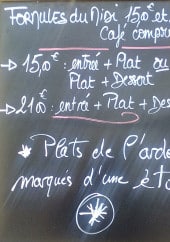 Formules du Midi 15,0€ et
Café compri
→ 15,0€ : entrée + Plat ou
Plat + Dessert
→ 21,0€ : entrée + Plat + Des
* Plats de l'ardo
marqués d'une éto